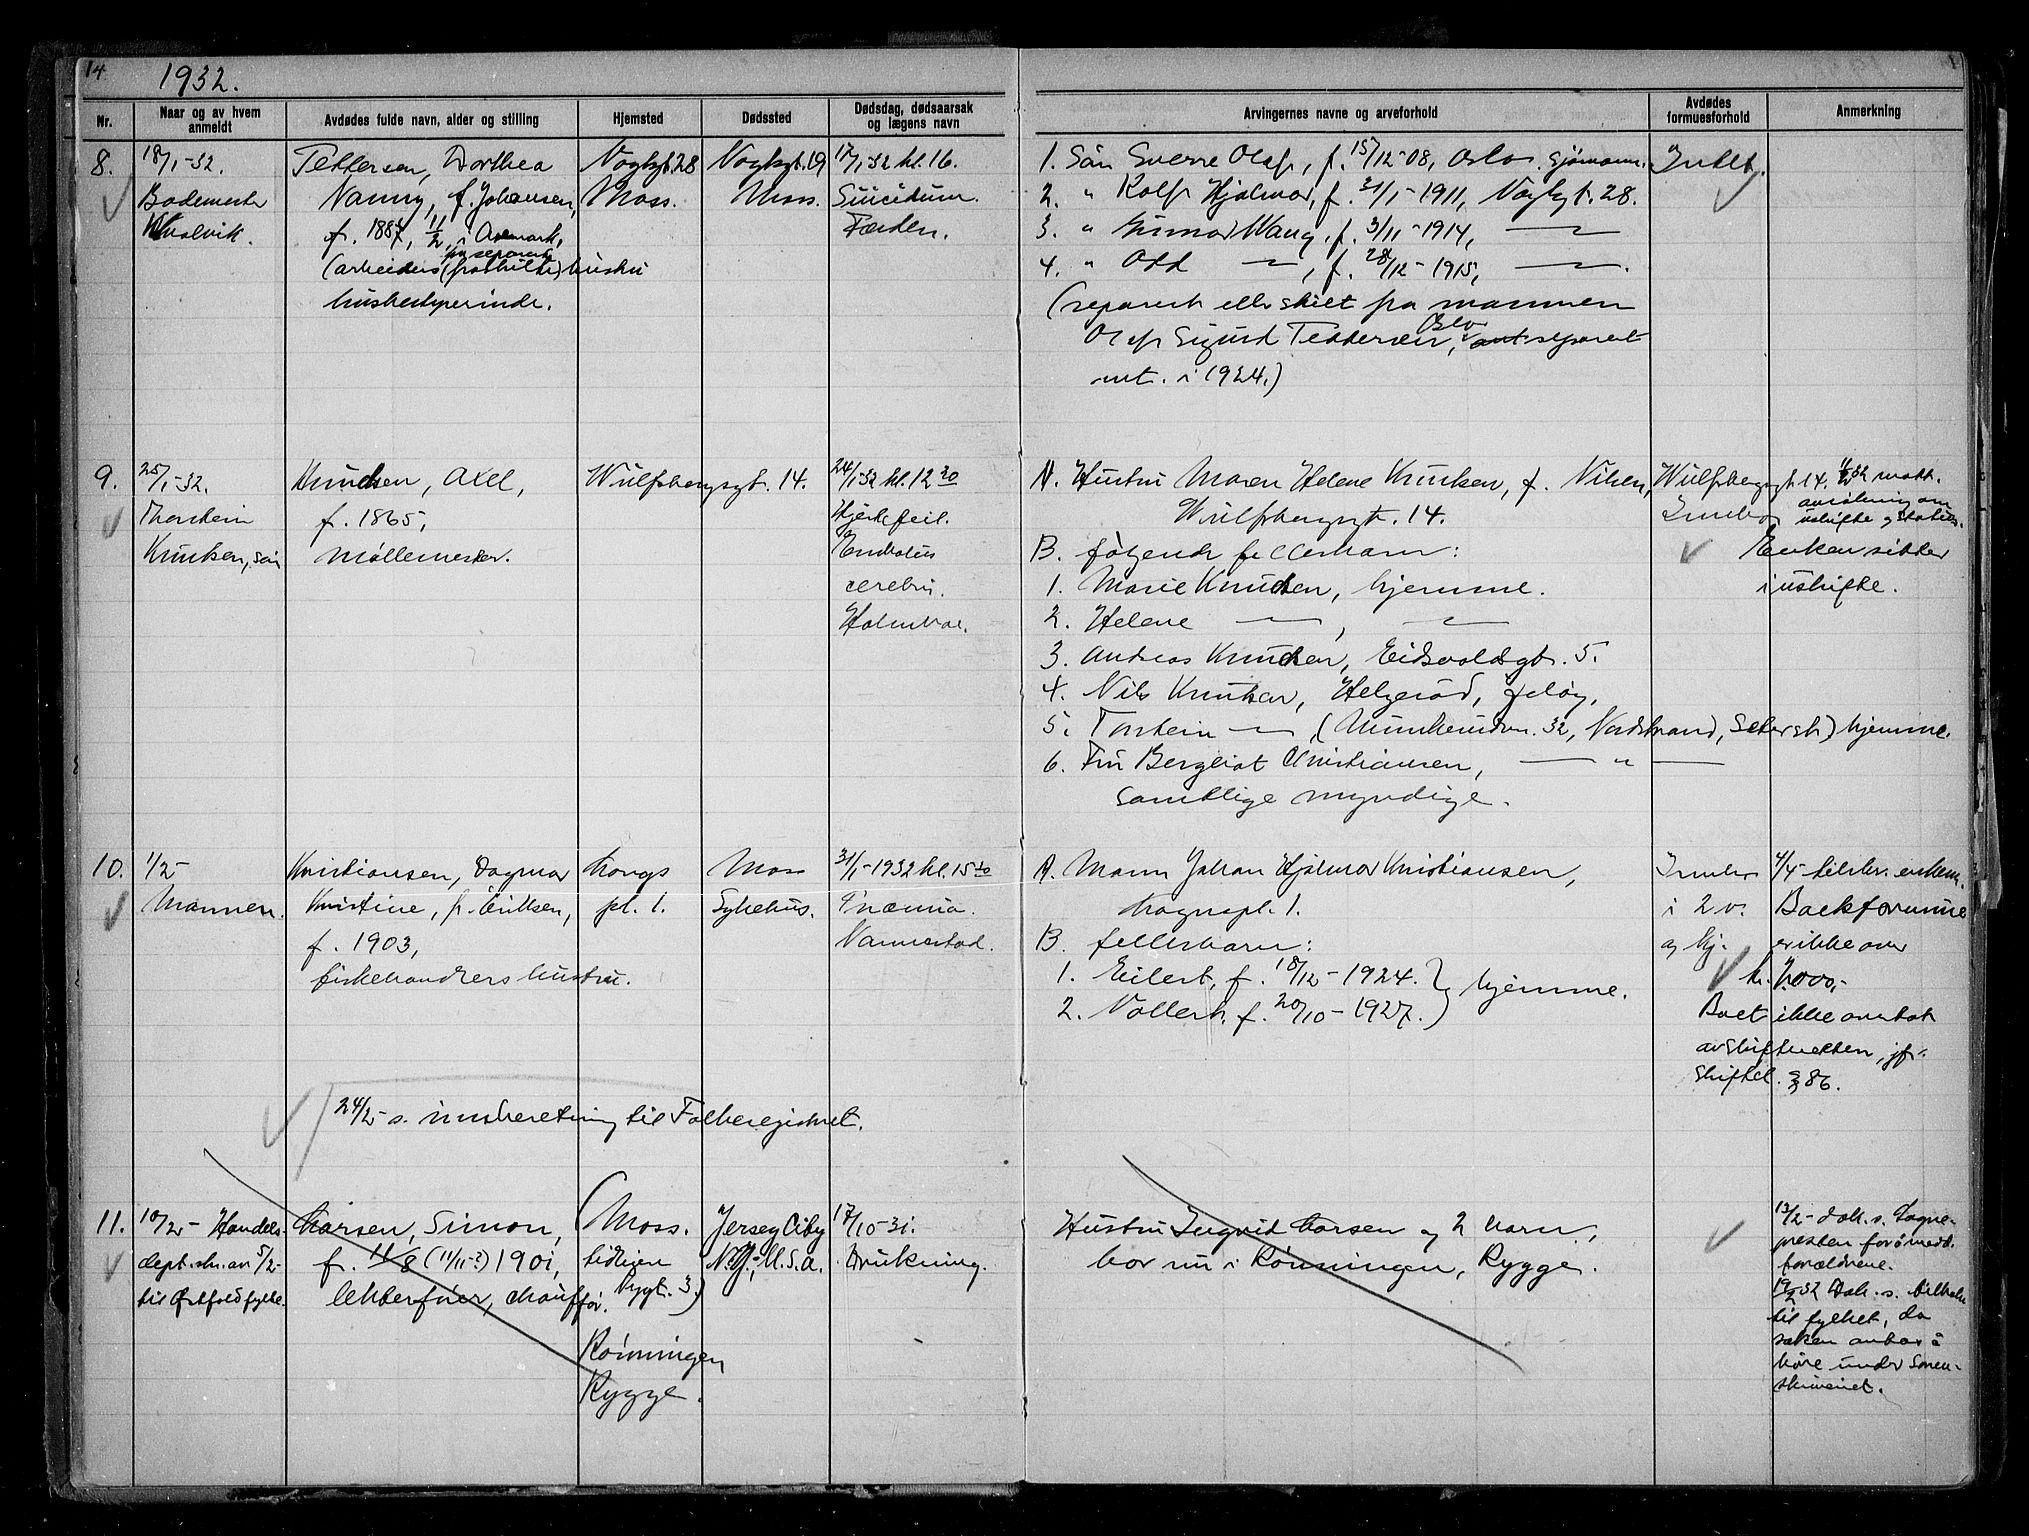 14
1932.
Nr.
Naar og av hvem anmeldt
Avdødes fulde navn, alder og stilling
Hjemsted
Dødssted
Dødsdag, dødsaarsak og lægens navn
Arvingernes navne og arveforhold
Avdødes formuesforhold
Anmerkning
8.
18/1-32.
Bademester
Hvalvik.
Pettersen, Dorthea
Nanny, f. Johansen,
f. 1887, 1/2, i Aremark,
(arbeiders (fraskilte) hustru
husbestyrerinde.
Vogtsgt. 28
Moss.
Vogtsgt. 19
Moss.
17/1-32 kl. 16.
Suicidum.
Færden.
1. Søn Sverre Olaf, f. 15/12-08, Oslo, sjømann.
2. " Rolf Hjalmar, f. 31/1-1911, Vogtsgt. 28.
3. " Gunnar Waug, f. 3/11-1914, —
4. " Odd —, f. 28/12-1915, —.
(separert eller skilt fra mannen
Olaf Sigurd Pettersen, Oslo, separert
mt. i 1924.)
Intet.
9.
25/1-32.
Thorstein
Knutsen, søn
Knudsen, Axel,
f. 1865,
møllemester.
Wulfsbergsgt. 14.
24/1-32 kl. 12 30
Hjertefeil.
Embolus
cerebri.
Holmboe.
A. Hustru Maren Helene Knutsen, f. Nilsen, Wulfsbergsgt. 14.
Wulfsbergsgt. 14.
B. følgende fellesbarn:
1. Marie Knudsen, hjemme.
2. Helene —, —
3. Andreas Knudsen, Eidsvoldsgt. 5.
4. Nils Knutsen, Helgerød, Jeløy,
5. Torstein — (Munkerudvn. 32, Nordstrand, Seterst.) hjemme.
6. Fru Bergliot Christiansen, — " —
samtlige myndige.
Innbo
1/2 32 mott.
ansökning om
uskifte
Enken sitter
i uskifte.
10.
1/2-
Mannen.
Kristiansen, Dagmar
Kristine, f. Eriksen,
f. 1903,
fiskehandlers hustru.
Kongs
pl. 1.
Moss
Sykehus.
31/1-1932 kl. 15 40
Pnæmia.
Vannestad.
A. Mann Johan Hjalmar Kristiansen,
Kognspl. 1.
B. fellesbarn:
1. Eilert, f. 18/12-1924.
2. Vollert, f. 20/10-1927.) hjemme.
Innbo
i 2 v.
og kj.
4/4- tilskr. enkem.
Boets formue
er ikke over
kr. 2.000,-
Boet ikke overtatt
av skifteretten, jfr.
skiftel. § 86.
24/2- s. innberetning til Folkeregistret.
11.
10/2- Handels-
dept. skr. av 5/2-
til Østfold fylke.
Larsen, Simon,
f. 11/8 (11/11-?) 1901,
lekterfører, chauffør.
(Moss.
tidligere
Rygt. 3.)
Rønningen
Rygge.
Jersey City
N.J., U.S.A.
17/10-31.
Drukning.
Hustru Ingrid Larsen og 2 barn,
bor nu i Rønningen, Rygge.
13/2- dok. s. Sogne-
presten for å medd.
forældrene.
19/2-32 Dok. s. tilbake
til fylket, da
saken antas å
høre under Soren-
skriveriet.